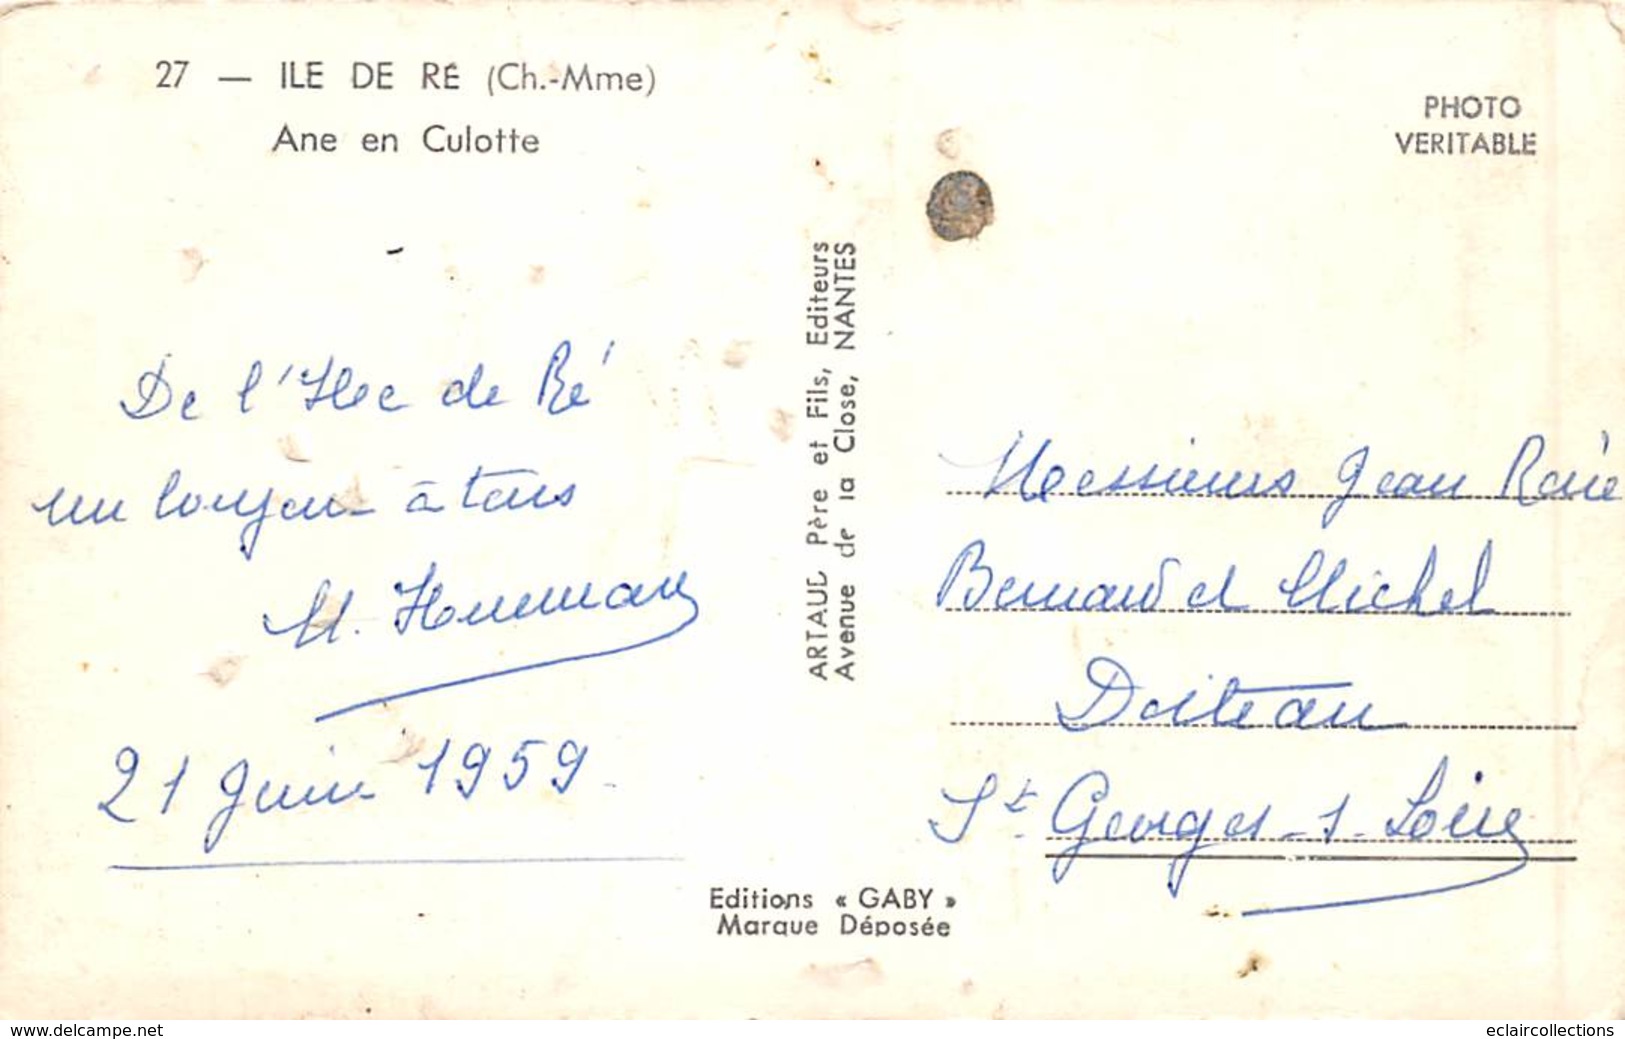 27 — ILE DE RÉ (Ch.-Mme)
Ane en Culotte
De l'Ile de Ré
un bonjour à tous
M.
21 Juin 1959
ARTAUD Père et Fils, Editeurs
Avenue de la Close, NANTES
Editions « GABY »
Marque Déposée
PHOTO
VERITABLE
Messieurs Jean René
Bernard et Michel
Doiteau
St Georges-s-Loire
www.delcampe.net
eclaircollections